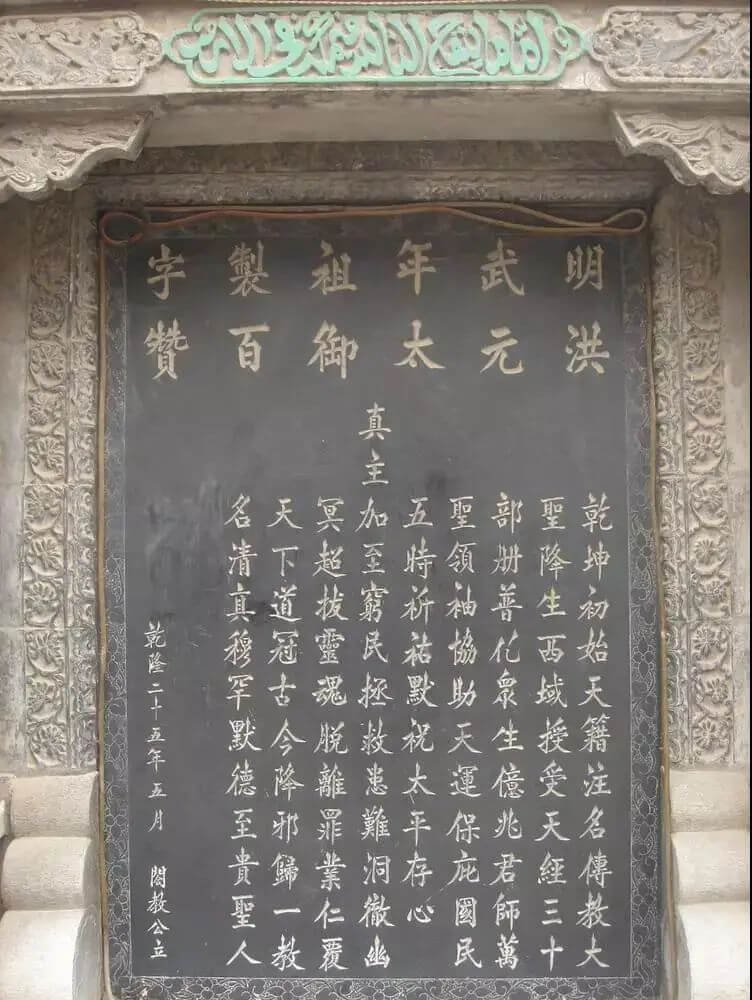 明洪
武元
年太
祖御
製百
字讚
乾坤初始天籍注名傳教大
聖降生西域授受天經三十
部册普化衆生億兆君師萬
聖領袖協助天運保庇國民
五時祈祐默祝太平存心
真主加至窮民拯救患難洞徹幽
冥超拔靈魂脱離罪業仁覆
天下道冠古今降邪歸一教
名清真穆罕默德至貴聖人
乾隆二十五年五月 閤教公立